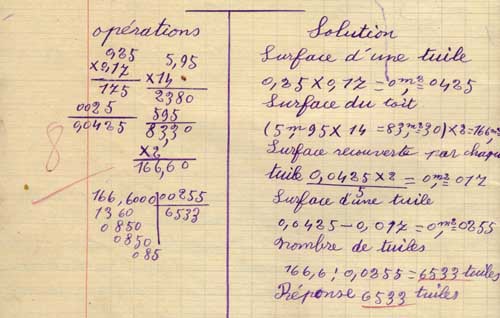 opérations
0,25
x0,17
175
0025
0,0425
5,95
x14
2380
595
83,30
x2
166,60
8
166,6000 00255
1360 6533
0850
0850
085
Solution
Surface d'une tuile
0,25 x 0,17 = 0m² 0425
Surface du toit
(5m95 x 14 = 83m²30) x 2 = 166m²
Surface recouverte par chaque
tuile 0,0425 x 2 = 0m² 017
5
Surface d'une tuile
0,0425 - 0,017 = 0m² 0255
Nombre de tuiles
166,6 : 0,0255 = 6533 tuiles
Réponse 6533 tuiles